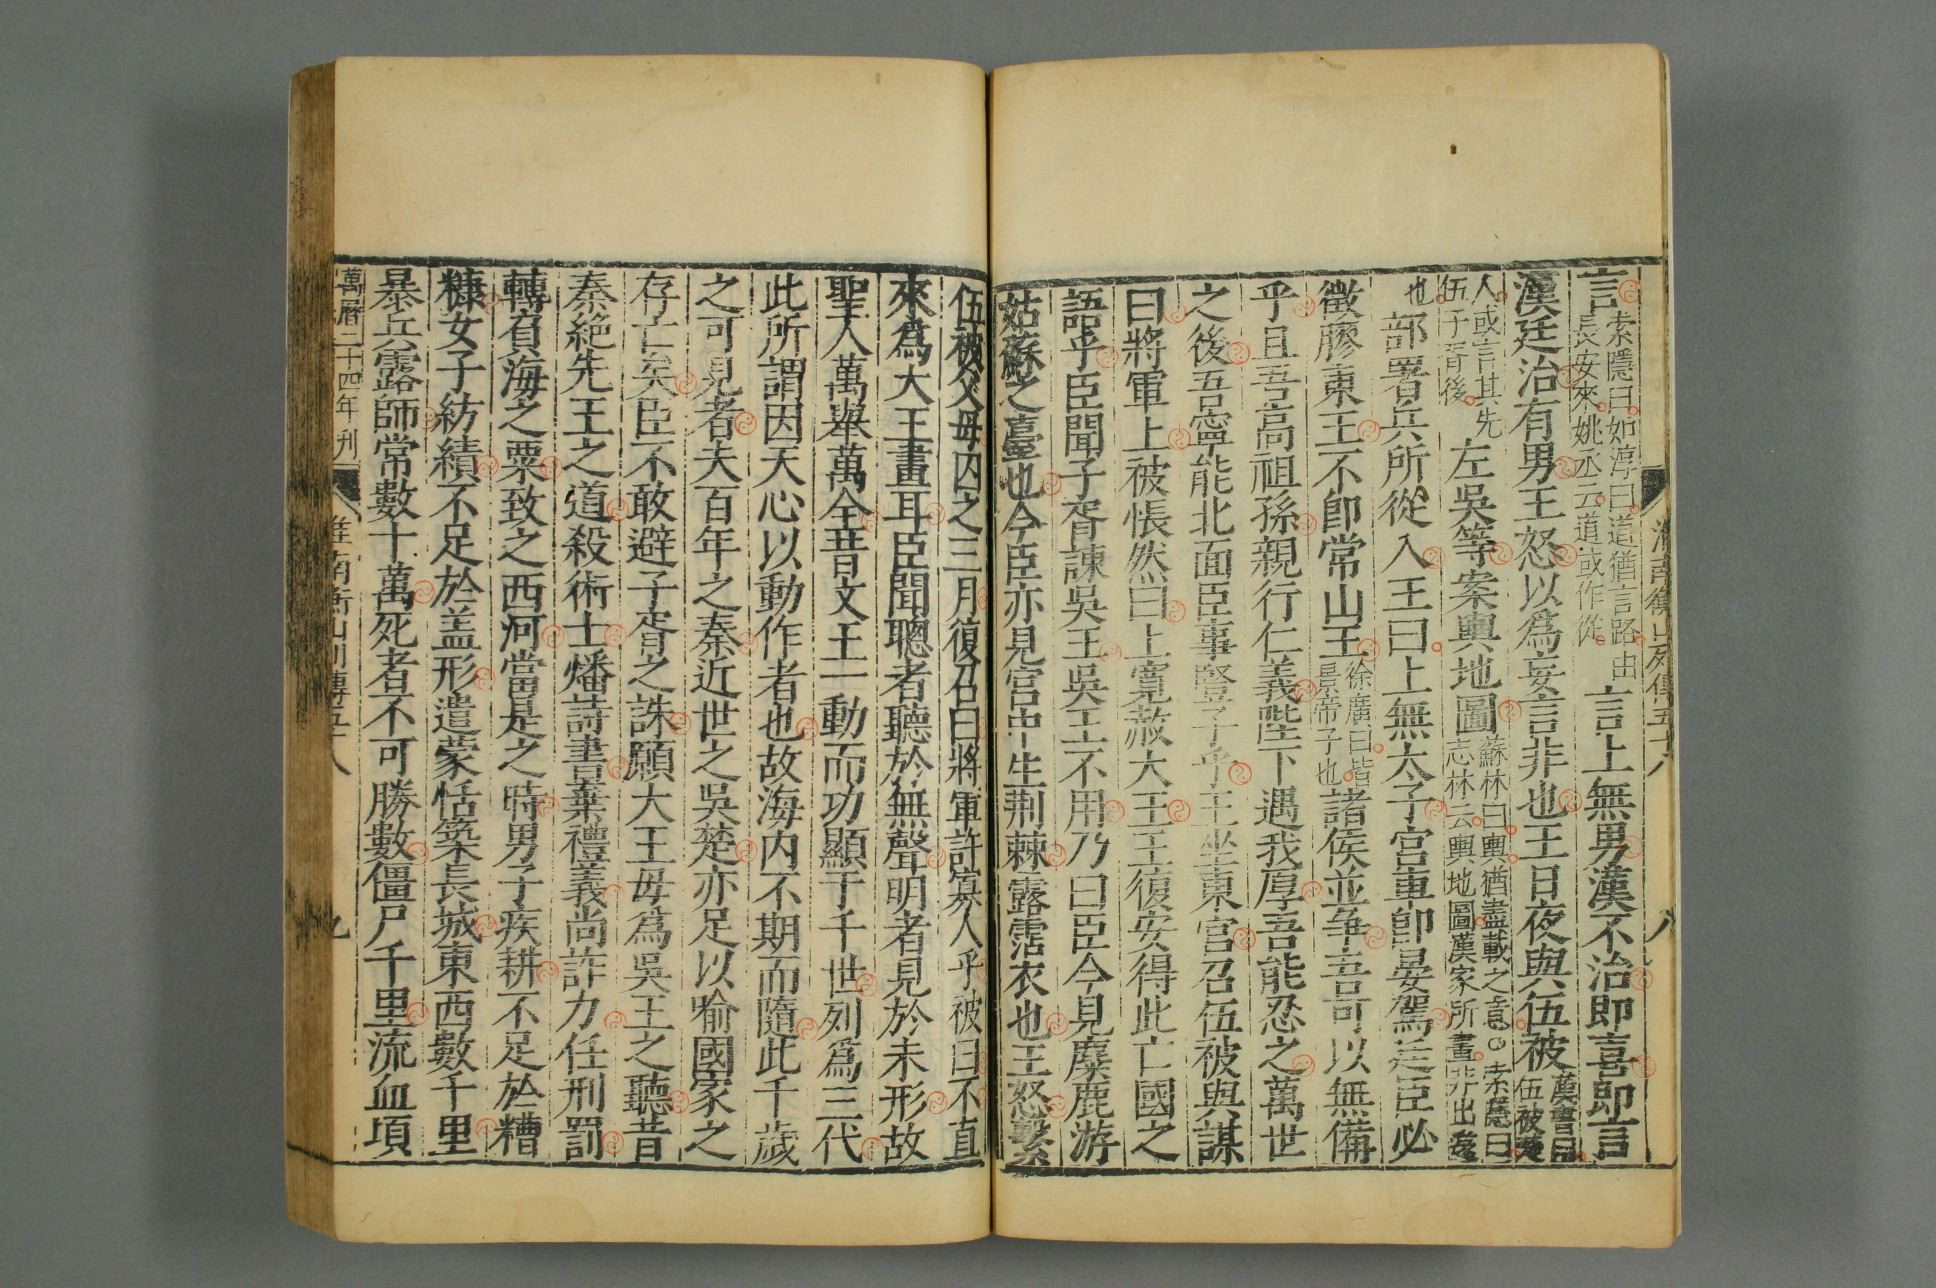 淮南衡山列傳五十八 八
言索隱曰如淳曰道猶言路由長安來姚丞云道或作從言上無男漢不治即喜即言
漢廷治有男王怒以爲妄言非也王日夜與伍被漢書曰伍被楚
人或言其先伍子胥後左吳等案輿地圖蘇林曰輿猶盡載之意○索隱曰志林云輿地圖漢家所畫非出遠
也部署兵所從入王曰上無太子宮車即晏駕廷臣必
徵膠東王不即常山王徐廣曰皆景帝子也諸侯並爭吾可以無備
乎且吾高祖孫親行仁義陛下遇我厚吾能忍之萬世
之後吾寧能北面臣事豎子乎王坐東宮召伍被與謀
曰將軍上被悵然曰上寬赦大王王復安得此亡國之
語乎臣聞子胥諫吳王吳王不用乃曰臣今見麋鹿游
姑蘇之臺也今臣亦見宮中生荆棘露霑衣也王怒繫
伍被父母囚之三月復召曰將軍許寡人乎被曰不直
來爲大王畫耳臣聞聰者聽於無聲明者見於未形故
聖人萬舉萬全昔文王一動而功顯于千世列爲三代
此所謂因天心以動作者也故海内不期而隨此千歲
之可見者夫百年之秦近世之吳楚亦足以喻國家之
存亡矣臣不敢避子胥之誅願大王毋爲吳王之聽昔
秦絶先王之道殺術士燔詩書棄禮義尚詐力任刑罰
轉負海之粟致之西河當是之時男子疾耕不足於糟
糠女子紡績不足於盖形遣蒙恬築長城東西數千里
暴兵露師常數十萬死者不可勝數僵尸千里流血項
萬曆二十四年刊 淮南衡山列傳五十八 九